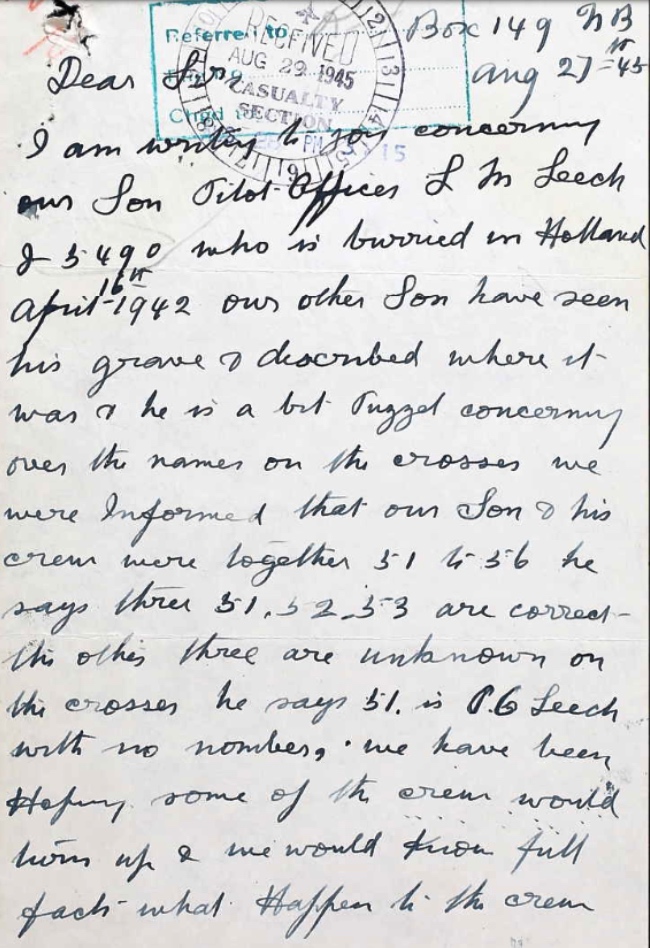 Box 149 NB
Aug 27th = 45
Referred to
RECEIVED
AUG 29 1945
CASUALTY
SECTION
PM
15
Dear Sir
I am writing to you concerning
our Son Pilot Officer L M Leech
J 5490 who is burried in Holland
April 16th 1942 our other Son have seen
his grave & discribed where it
was & he is a bit Puzzel concerning
over the names on the crosses we
were Informed that our Son & his
crew were together 51 to 56 he
says three 51. 52. 53 are correct
the other three are unknown on
the crosses he says 51. is P.O Leech
with no nombers, we have been
Hoping some of the crew would
turn up & we would know full
facts what Happen to the crew